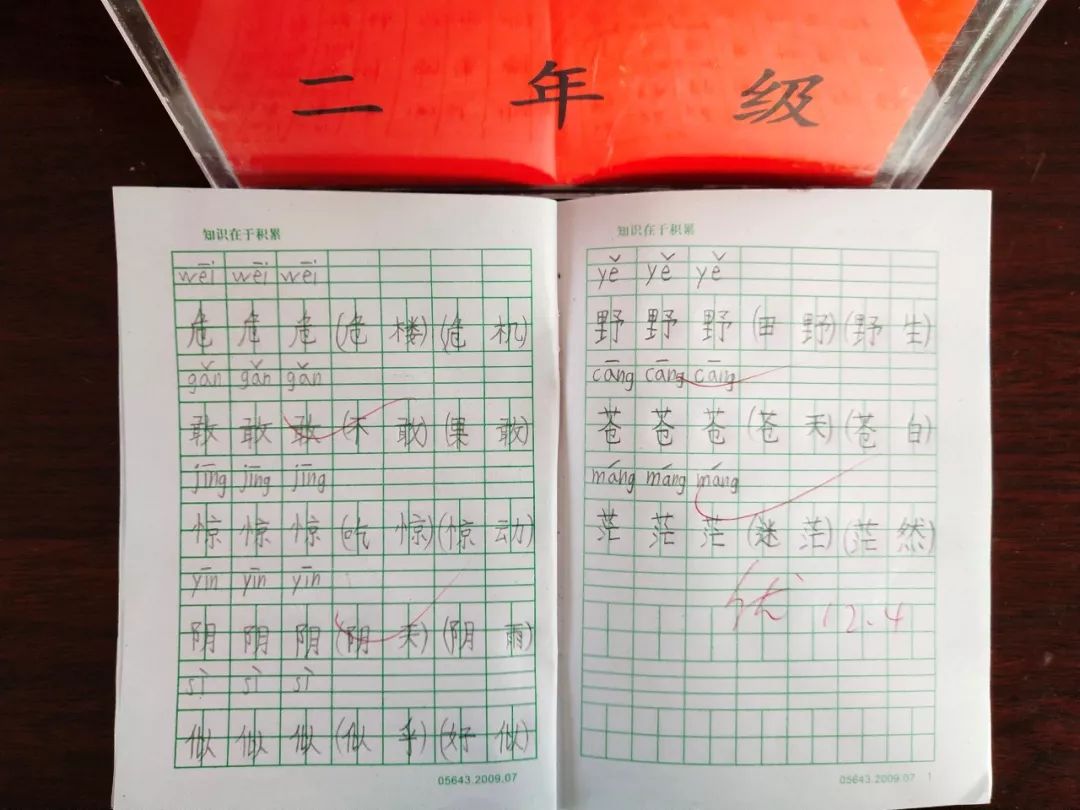 二年级
知识在于积累
wēi wēi wēi
危 危 危 (危 楼) (危 机)
gǎn gǎn gǎn
敢 敢 敢 (不 敢) (果 敢)
jīng jīng jīng
惊 惊 惊 (吃 惊) (惊 动)
yīn yīn yīn
阴 阴 阴 (阴 天) (阴 雨)
sì sì sì
似 似 似 (似 乎) (好 似)
05643.2009.07
知识在于积累
yě yě yě
野 野 野 (田 野) (野 生)
cāng cāng cāng
苍 苍 苍 (苍 天) (苍 白)
máng máng máng
茫 茫 茫 (迷 茫) (茫 然)
优 12.4
05643.2009.07 1